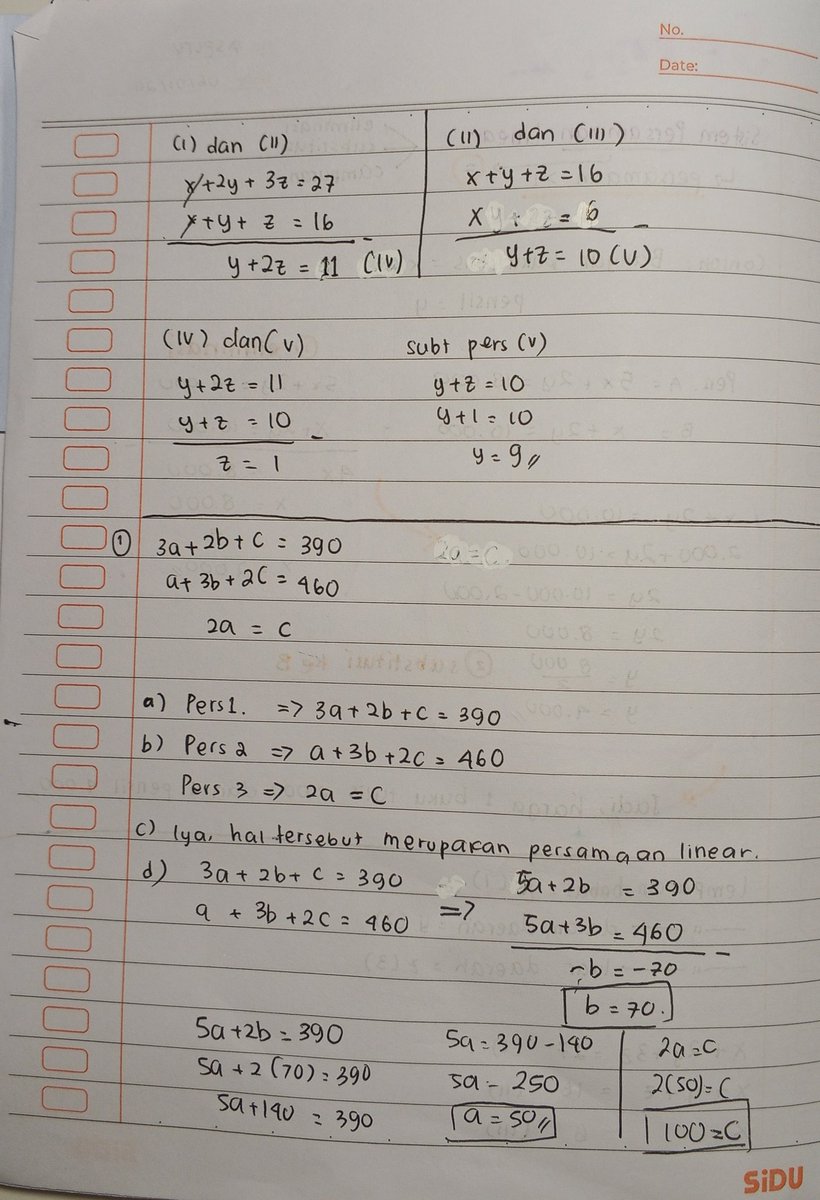 No.
Date:
(I) dan (II)
x+2y + 3z = 27
x+y+ z = 16
-
y+2z = 11 (IV)
(II) dan (III)
x+y+z = 16
x = 6
-
y+z = 10 (V)
(IV) dan (V)
y+2z = 11
y+z = 10
-
z = 1
subt pers (V)
y+z = 10
y+1 = 10
y = 9 //
① 3a+2b+c = 390
2a = c
a+3b+2c = 460
2a = c
a) Pers 1. => 3a+2b+c = 390
b) Pers 2 => a+3b+2c = 460
Pers 3 => 2a = c
c) Iya, hal tersebut merupakan persamaan linear.
d) 3a+2b+c = 390
a + 3b+2c = 460
=>
5a+2b = 390
5a+3b = 460
-
-b = -70
b = 70.
5a+2b = 390
5a + 2(70) = 390
5a+140 = 390
5a = 390-140
5a = 250
a = 50 //
2a = c
2(50) = c
100 = c
SiDU